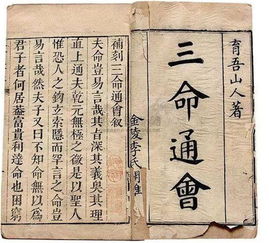 育吾山人著
三命通會
金陵李氏
補刻三命通會敘
夫命豈易言哉其旨深其義奧其理
直上通夫乾元無極之後是以聖人
惟恐人之鈎玄索隱而罕言之命豈
易言哉然夫子又曰不知命無以爲
君子者何居蓋富貴利達命也困窮